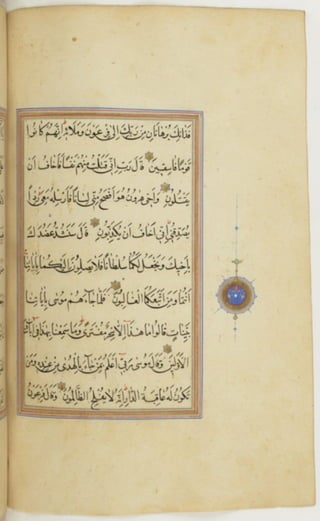 فَذَانِكَ بُرْهَانَانِ مِنْ رَبِّكَ اِلٰى فِرْعَوْنَ وَمَلَائِهِ اِنَّهُمْ كَانُوا
قَوْمًا فَاسِقِينَ قَالَ رَبِّ اِنِّي قَتَلْتُ مِنْهُمْ نَفْسًا فَاَخَافُ اَنْ
يَقْتُلُونِ وَاَخِي هٰرُونُ هُوَ اَفْصَحُ مِنِّي لِسَانًا فَاَرْسِلْهُ مَعِيَ رِدْءًا
يُصَدِّقُنِي اِنِّي اَخَافُ اَنْ يُكَذِّبُونِ قَالَ سَنَشُدُّ عَضُدَكَ
بِاَخِيكَ وَنَجْعَلُ لَكُمَا سُلْطَانًا فَلَا يَصِلُونَ اِلَيْكُمَا بِاٰيَاتِنَا
اَنْتُمَا وَمَنِ اتَّبَعَكُمَا الْغَالِبُونَ فَلَمَّا جَاءَهُمْ مُوسٰى بِاٰيَاتِنَا
بَيِّنَاتٍ قَالُوا مَا هٰذَا اِلَّا سِحْرٌ مُفْتَرًى وَمَا سَمِعْنَا بِهٰذَا فِي اٰبَائِنَا
الْاَوَّلِينَ وَقَالَ مُوسٰى رَبِّي اَعْلَمُ بِمَنْ جَاءَ بِالْهُدٰى مِنْ عِنْدِهِ وَمَنْ
تَكُونُ لَهُ عَاقِبَةُ الدَّارِ اِنَّهُ لَا يُفْلِحُ الظَّالِمُونَ وَقَالَ فِرْعَوْنُ